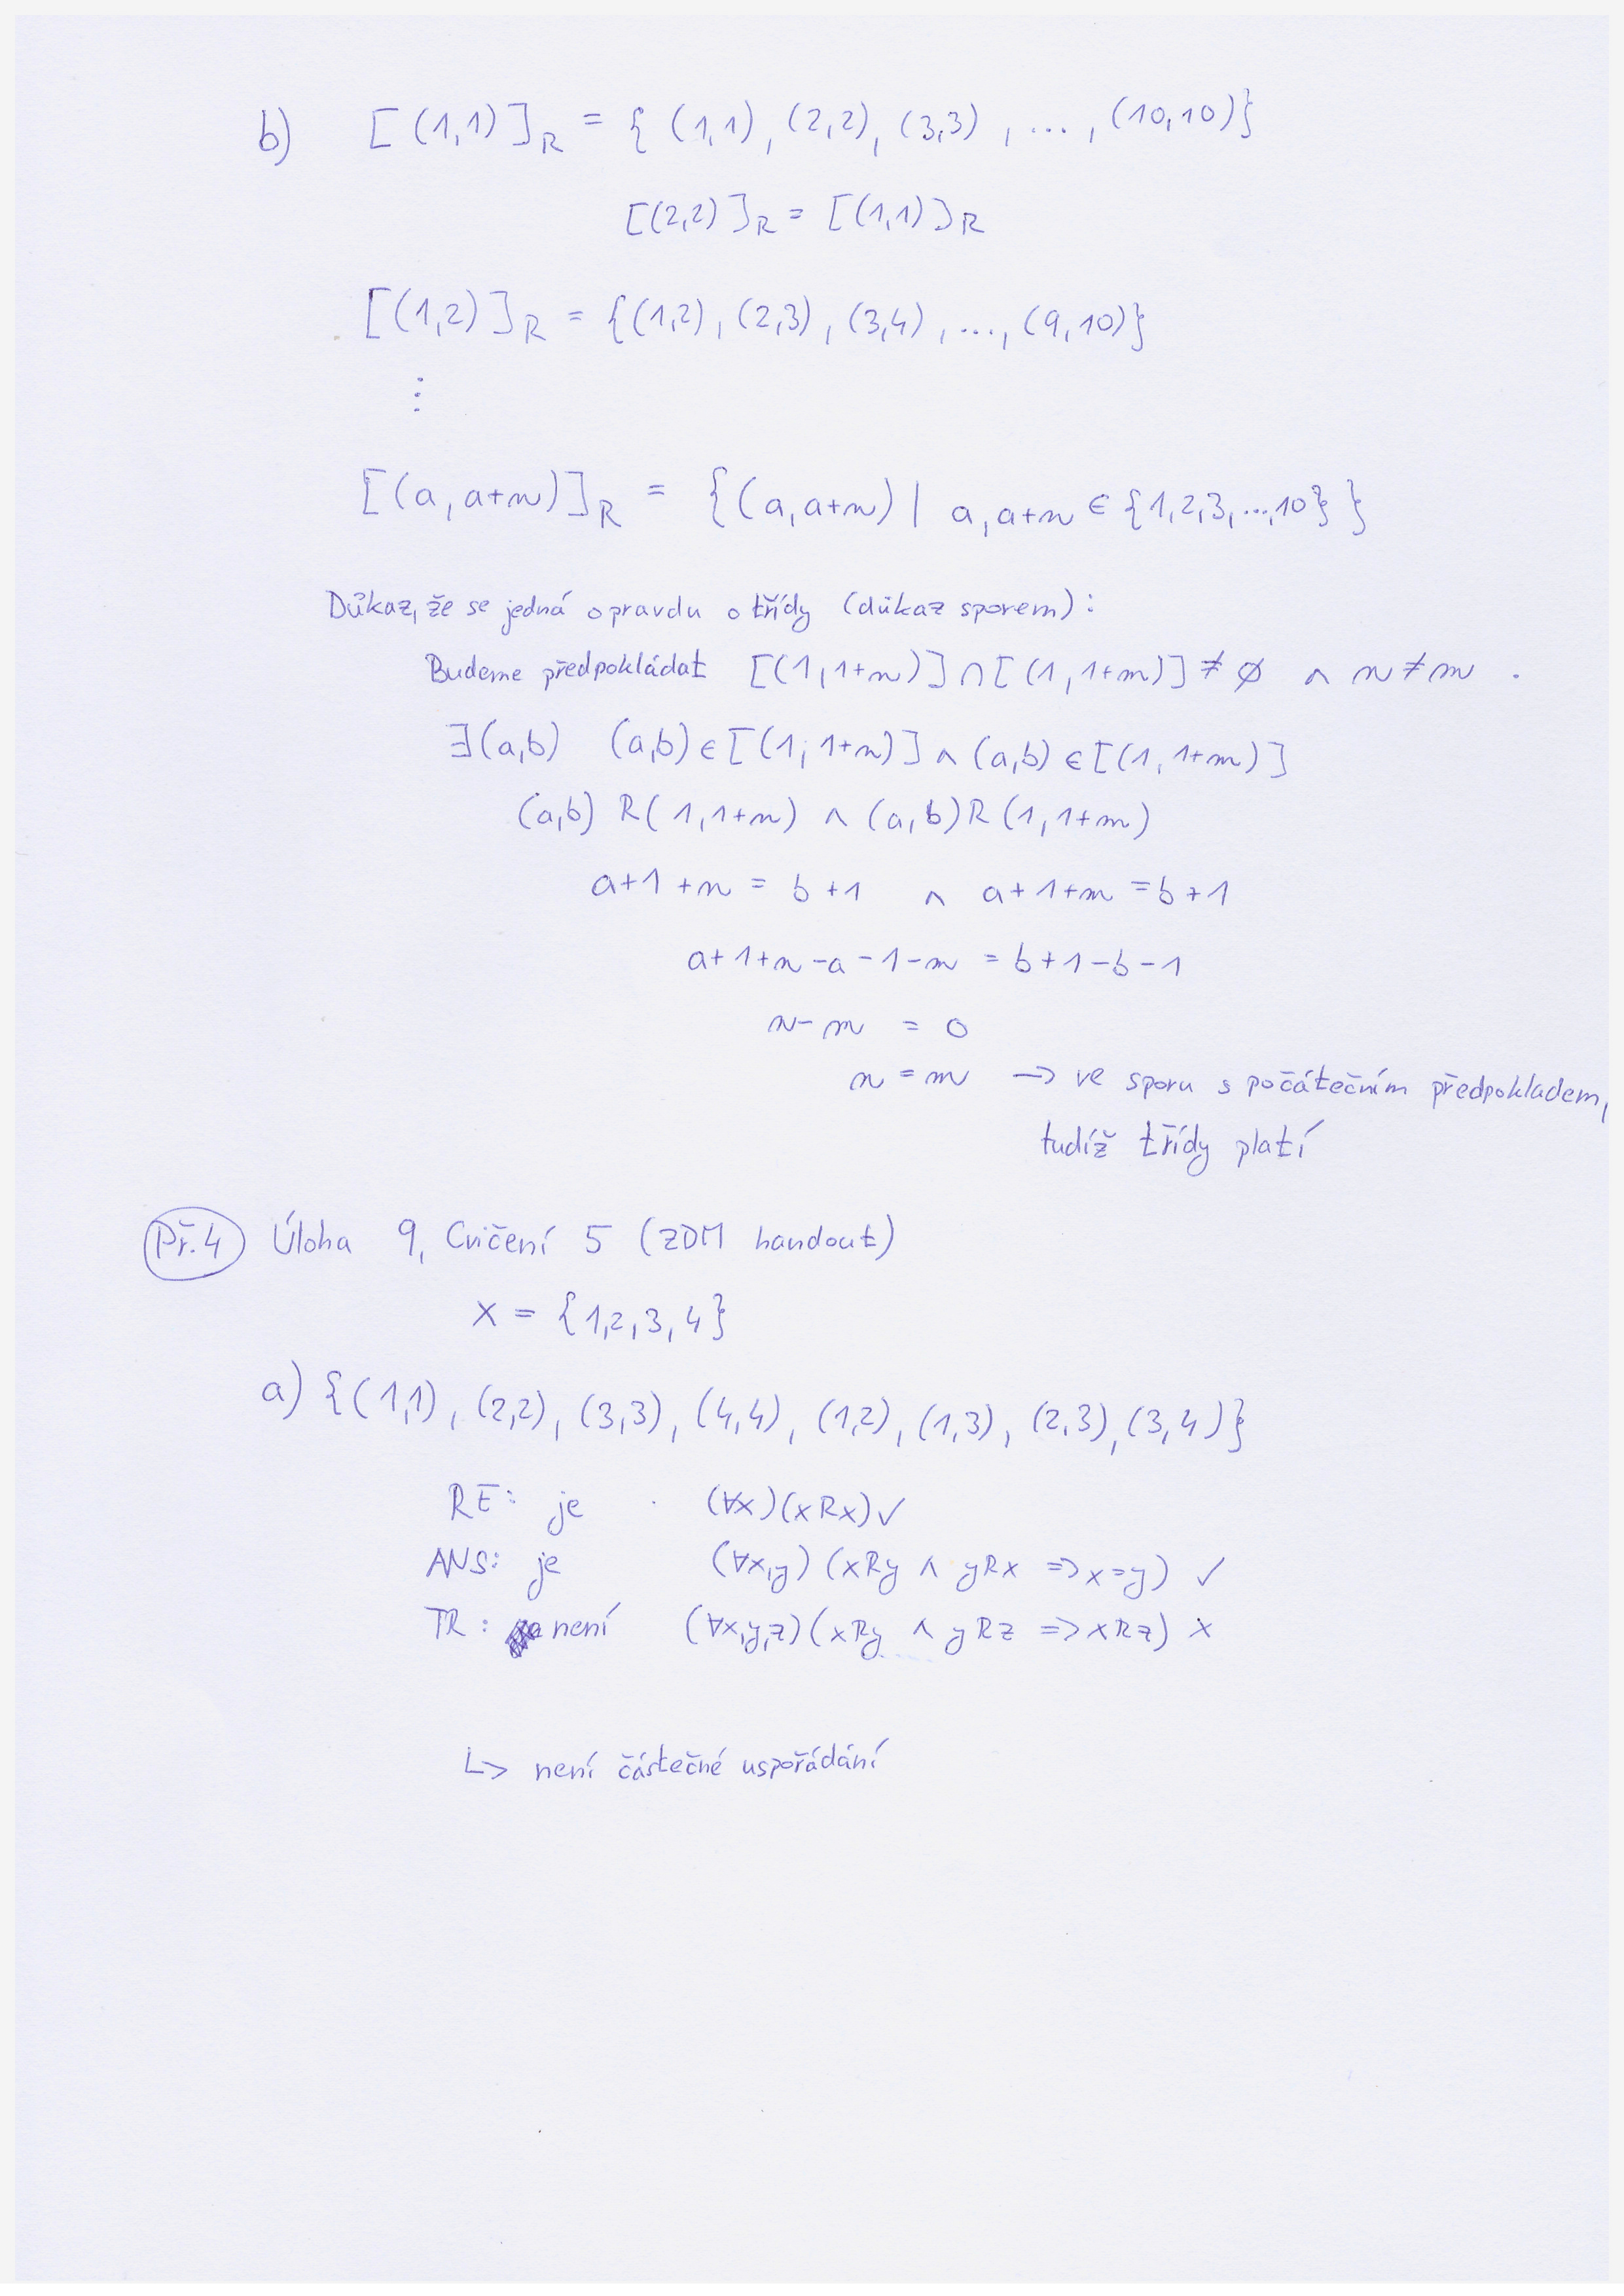 b) [(1,1)]_R = { (1,1), (2,2), (3,3), ..., (10,10)}
[(2,2)]_R = [(1,1)]_R
[(1,2)]_R = {(1,2), (2,3), (3,4), ..., (9,10)}
⋮
[(a,a+n)]_R = {(a,a+n) | a,a+n ∈ {1,2,3,...,10}}
Důkaz, že se jedná opravdu o třídy (důkaz sporem):
Budeme předpokládat [(1,1+n)]∩[(1,1+m)] ≠ ∅ ∧ n≠m .
∃(a,b) (a,b)∈[(1,1+n)] ∧ (a,b)∈[(1,1+m)]
(a,b) R(1,1+n) ∧ (a,b)R(1,1+m)
a+1+n = b+1 ∧ a+1+m = b+1
a+1+n-a-1-m = b+1-b-1
n-m = 0
n = m → ve sporu s počátečním předpokladem,
tudíž třídy platí
Př.4 Úloha 9, Cvičení 5 (ZDM handout)
X = {1,2,3,4}
a) {(1,1), (2,2), (3,3), (4,4), (1,2), (1,3), (2,3), (3,4)}
RE: je (∀x)(xRx) ✓
ANS: je (∀x,y)(xRy ∧ yRx => x=y) ✓
TR: není (∀x,y,z)(xRy ∧ yRz => xRz) x
↳ není částečné uspořádání